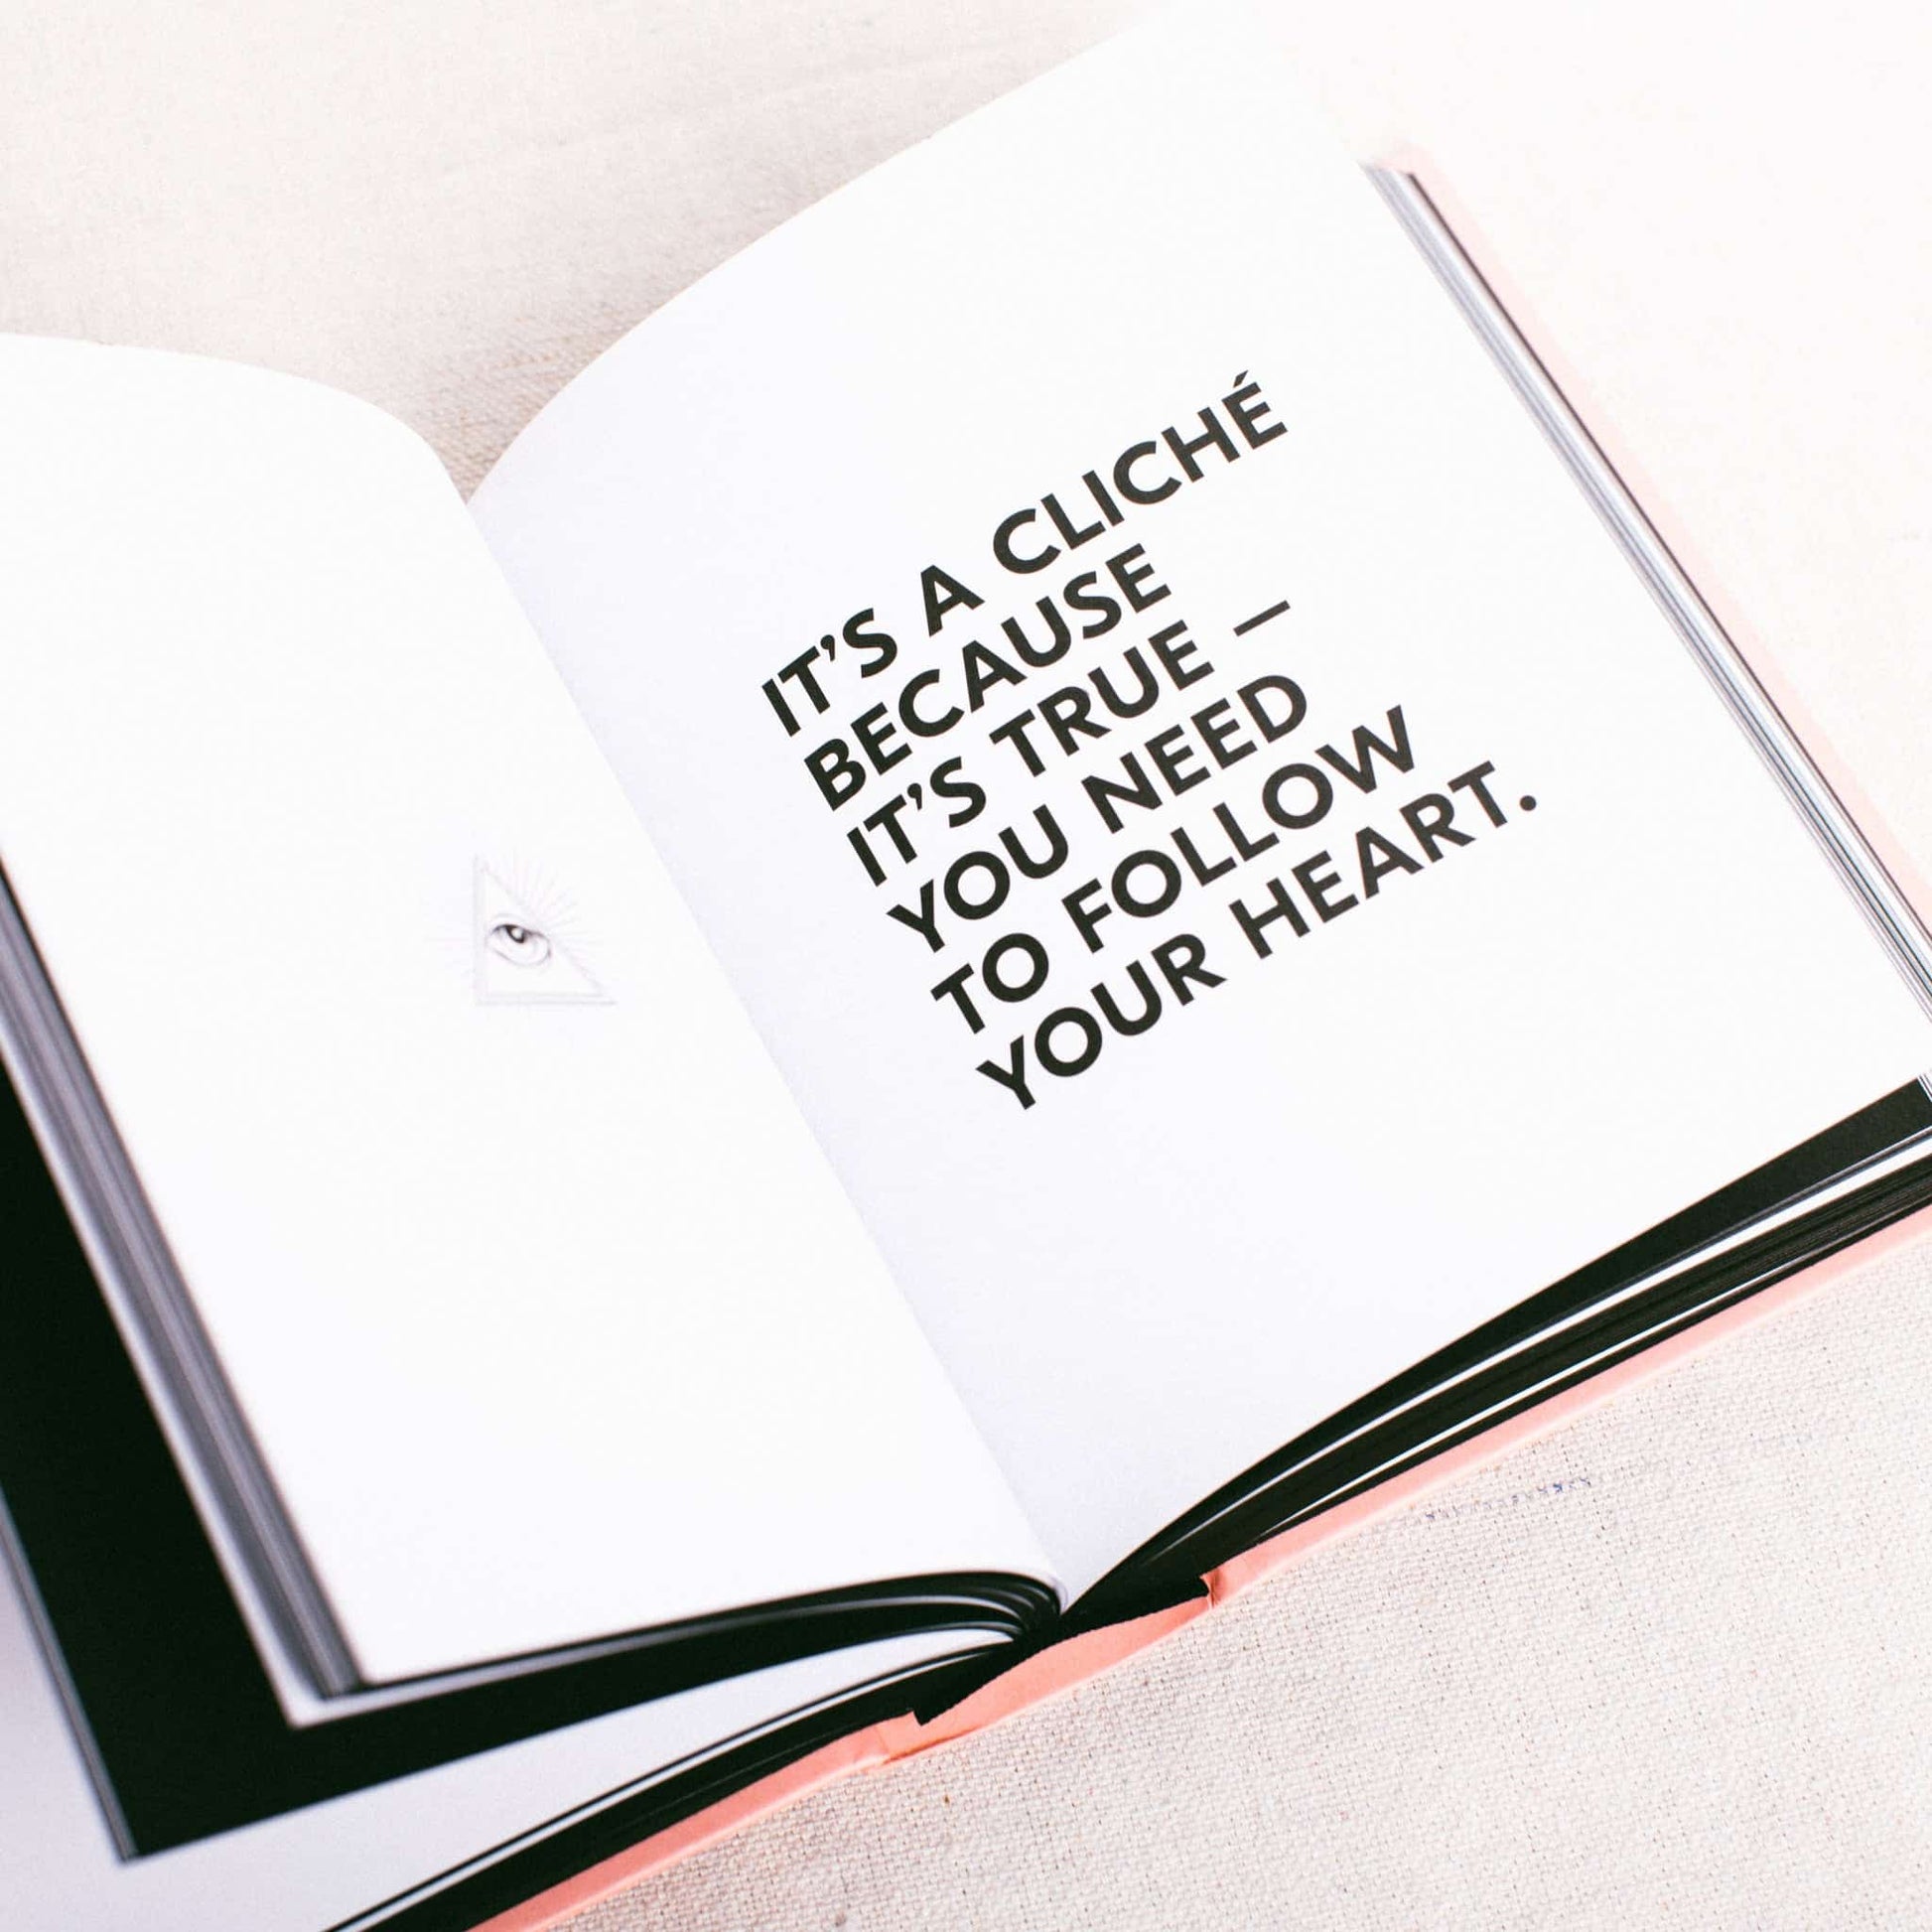 IT’S A CLICHÉ
BECAUSE
IT’S TRUE –
YOU NEED
TO FOLLOW
YOUR HEART.